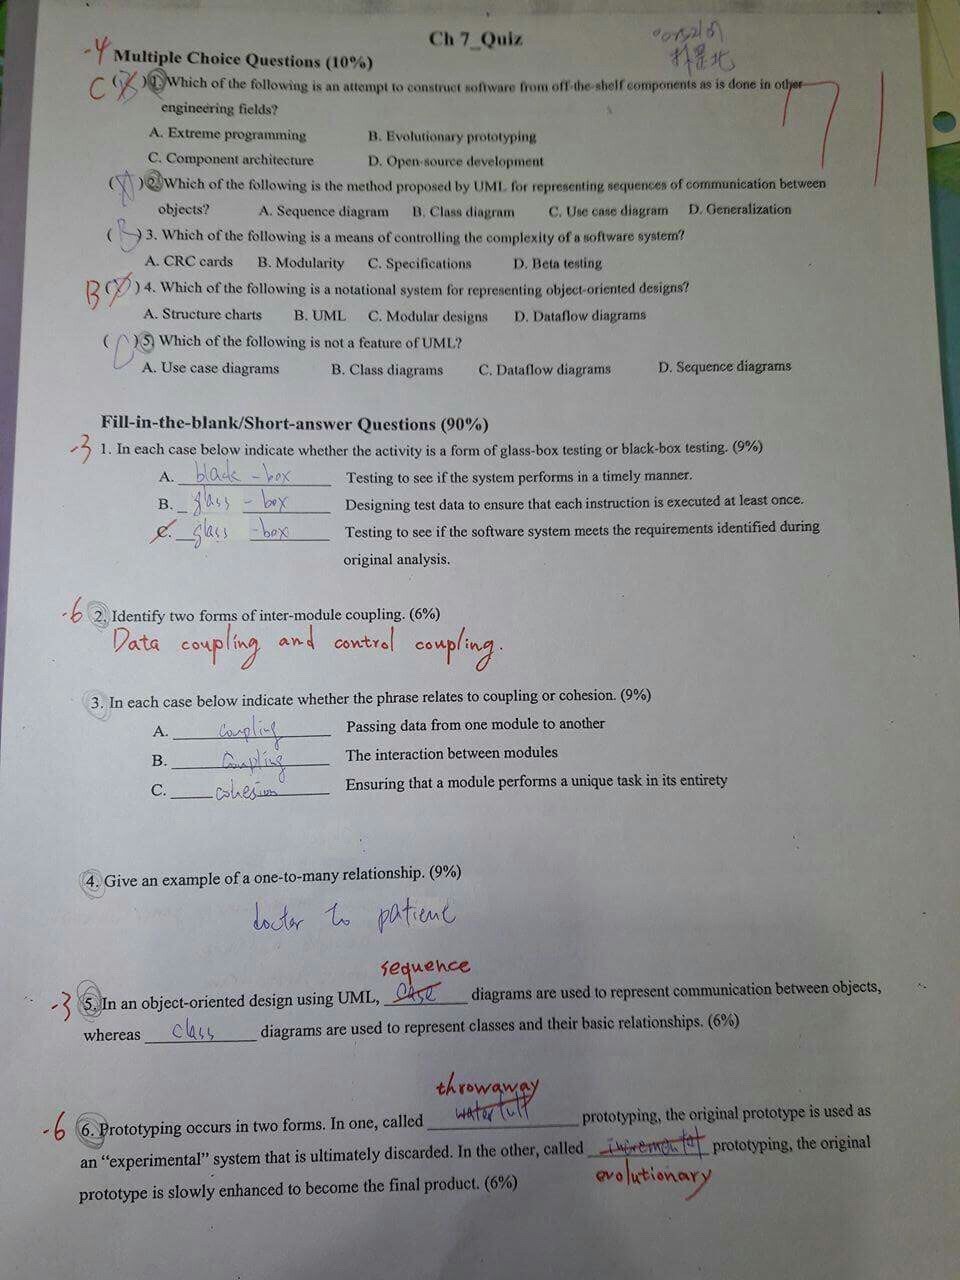 Ch 7_Quiz
-4
Multiple Choice Questions (10%)
71
C ( B ) 1. Which of the following is an attempt to construct software from off-the-shelf components as is done in other
engineering fields?
A. Extreme programming B. Evolutionary prototyping
C. Component architecture D. Open-source development
( A ) 2. Which of the following is the method proposed by UML for representing sequences of communication between
objects? A. Sequence diagram B. Class diagram C. Use case diagram D. Generalization
( B ) 3. Which of the following is a means of controlling the complexity of a software system?
A. CRC cards B. Modularity C. Specifications D. Beta testing
B ( ) 4. Which of the following is a notational system for representing object-oriented designs?
A. Structure charts B. UML C. Modular designs D. Dataflow diagrams
( C ) 5. Which of the following is not a feature of UML?
A. Use case diagrams B. Class diagrams C. Dataflow diagrams D. Sequence diagrams
Fill-in-the-blank/Short-answer Questions (90%)
-3 1. In each case below indicate whether the activity is a form of glass-box testing or black-box testing. (9%)
A. black-box Testing to see if the system performs in a timely manner.
B. glass-box Designing test data to ensure that each instruction is executed at least once.
C. glass-box Testing to see if the software system meets the requirements identified during
original analysis.
-6 2. Identify two forms of inter-module coupling. (6%)
Data coupling and control coupling.
3. In each case below indicate whether the phrase relates to coupling or cohesion. (9%)
A. coupling Passing data from one module to another
B. Coupling The interaction between modules
C. cohesion Ensuring that a module performs a unique task in its entirety
4. Give an example of a one-to-many relationship. (9%)
doctor to patient
sequence
-3 5. In an object-oriented design using UML, case diagrams are used to represent communication between objects,
whereas class diagrams are used to represent classes and their basic relationships. (6%)
throwaway
-6 6. Prototyping occurs in two forms. In one, called waterfull prototyping, the original prototype is used as
an “experimental” system that is ultimately discarded. In the other, called incremental prototyping, the original
evolutionary
prototype is slowly enhanced to become the final product. (6%)